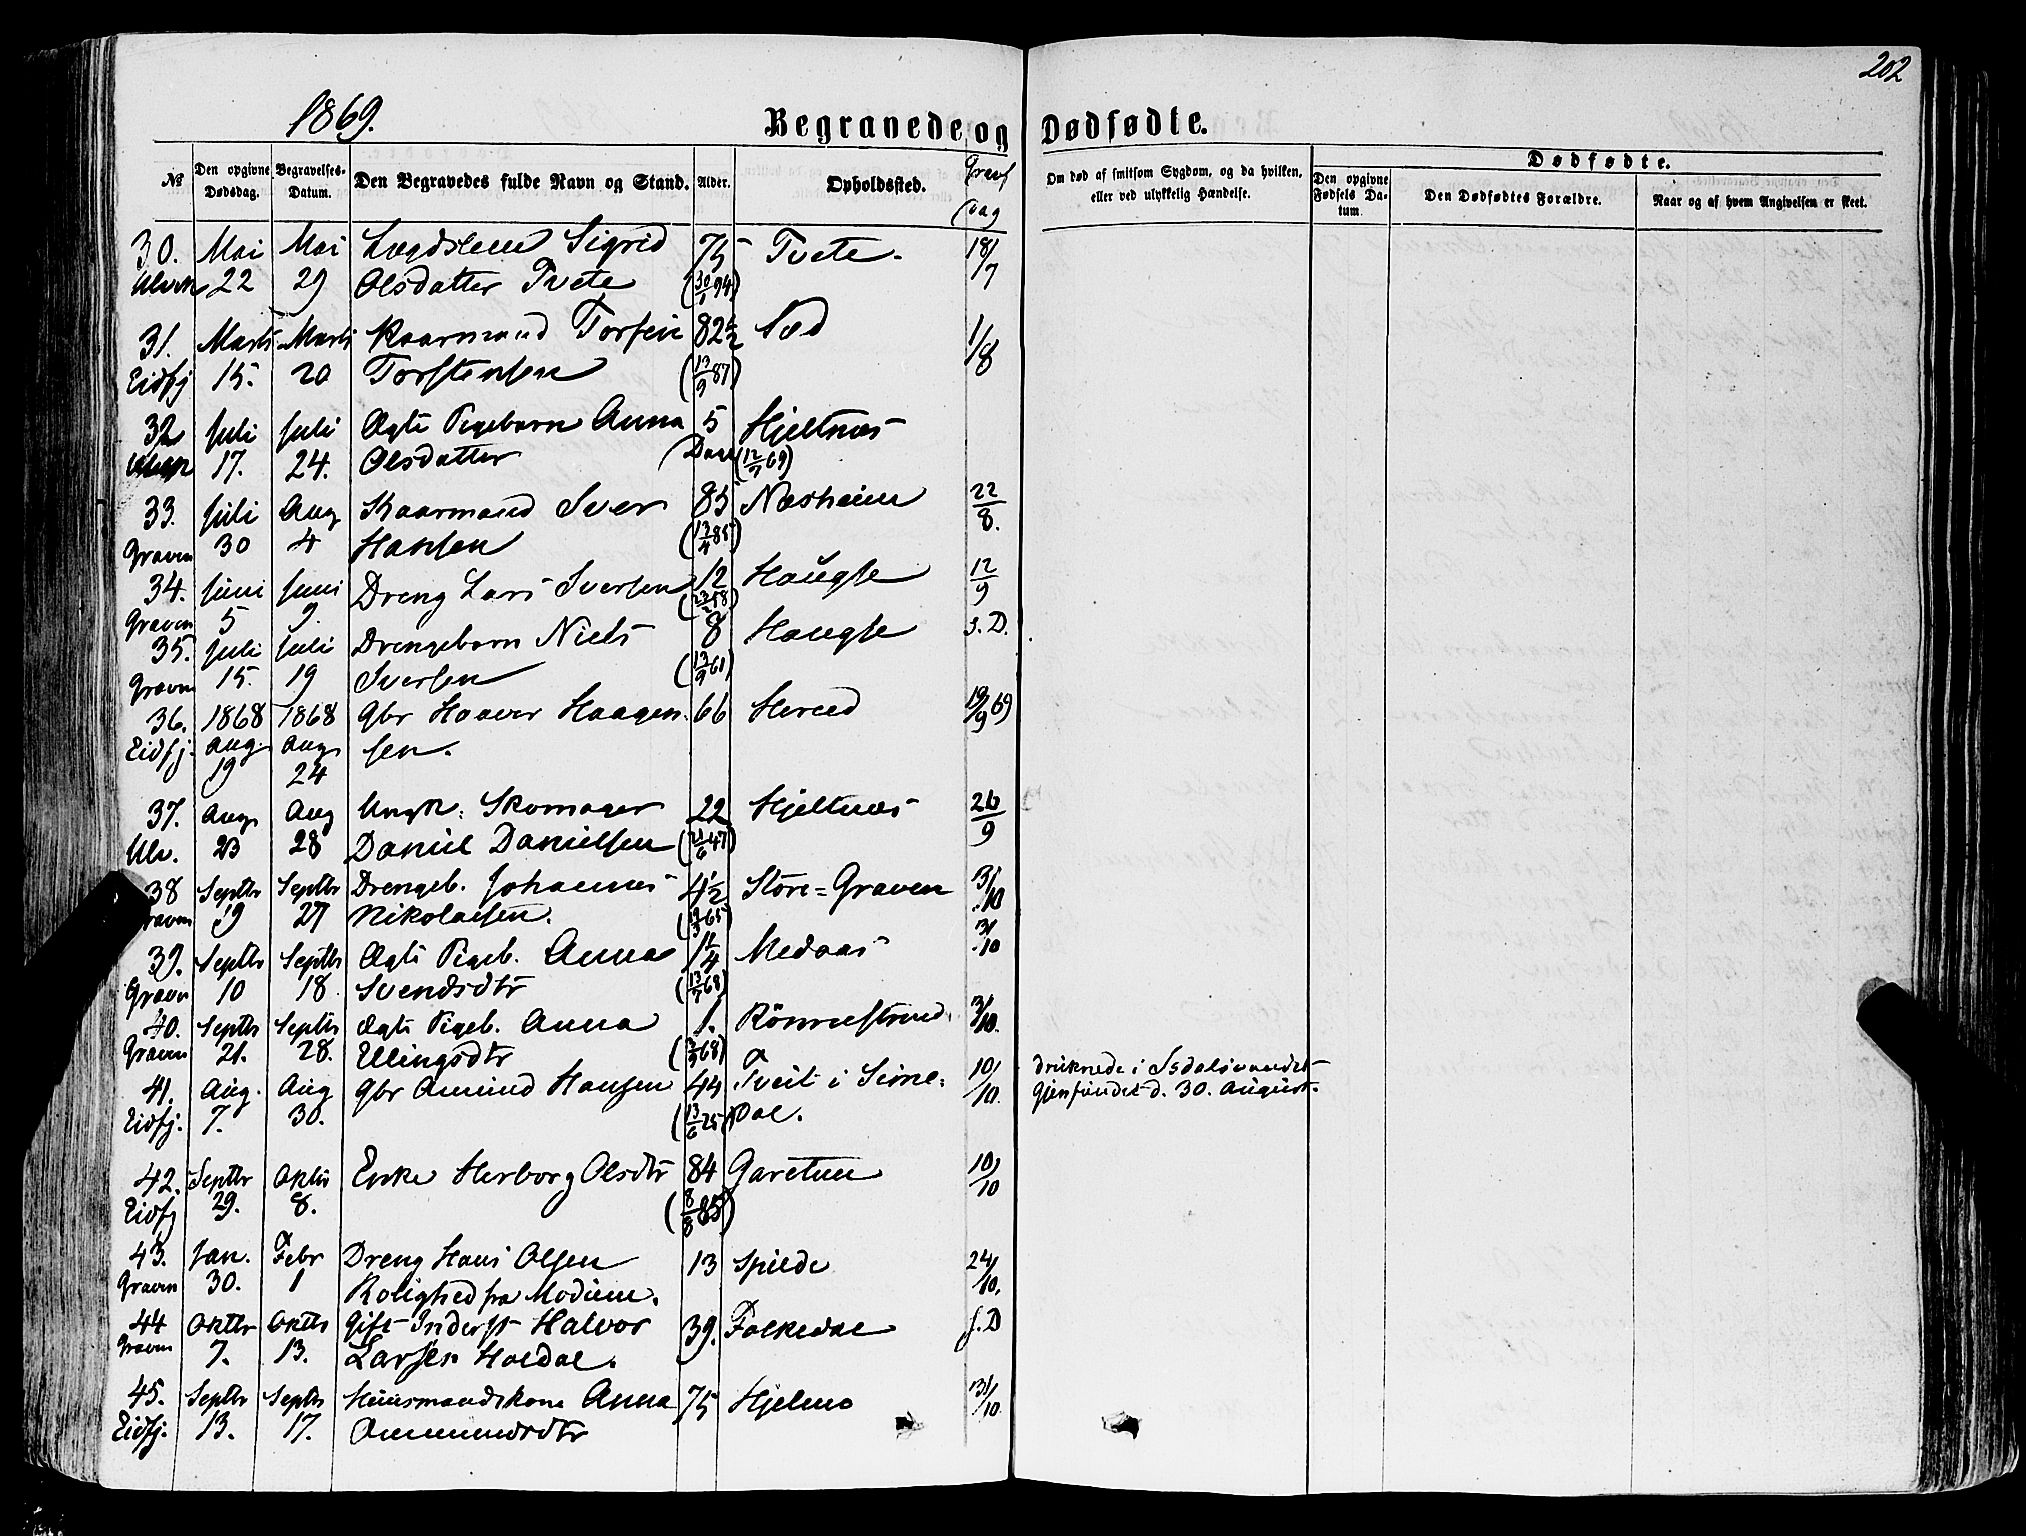 202
1869.
Begravede og Dødfødte.
№ Den opgivne Dødsdag. Begravelses-Datum. Den Begravedes fulde Navn og Stand. Alder. Opholdssted. Om død af smitsom Sygdom, og da hvilken, eller ved ulykkelig Hændelse. Den opgivne Fødsels Datum. Dødfødte. Den Dødfødtes Forældre. Naar og af hvem Angivelsen er skeet.
30. Mai Mai Lægdslem Sigrid 75 Tvete. 18/7
Ulvik 22 29 Olsdatter Tvete (30/1 94)
31. Marts Marts Kaarmand Torfin 82½ Sæd 1/8
Eidfj 15. 20 Torstensen (13/9 87)
32 Juli Juli Ægte Pigebarn Anna 5 Hjeltnæs
Ulvik 17. 24. Olsdatter Dage (12/7 69)
33. Juli Aug Kaarmand Iver 85 Næsheim 22/8.
Graven 30 4 Hansen
34. Juni Juni Dreng Lars Iversen 12 Haugse 12/9
Graven 5 9.
35. Juli Juli Drengebarn Niels 8 Haugse s. D.
Graven 15. 19 Iversen (13/9 61)
36. 1868 1868 Gbr Haaver Haagen 66 Hereid 19/9 69
Eidfj. Aug. Aug sen.
19 24
37. Aug Aug Ungk. Skomager 22 Hjeltnæs 26/9
Ulv. 23 28 Daniel Danielsen (21/6 47)
38 Septbr Septbr Drengeb. Johannes 4½ Store=Graven 3/10
Graven 19 27 Nikolaisen.
39. Septbr Septbr Ægte Pigeb. Anna 1¼ Medaas 3/10
Graven 10 18 Svendsdtr (13/7 68)
40. Septbr Septbr Ægte Pigeb. Anna 1. Rönnestrand 3/10.
Graven 21. 28. Ellingsdtr
41. Aug. Aug Gbr Amund Hansen 44 Tveit i Sime= 10/10. druknede i Isdalsvandet
Eidfj. 7. 30. (13/6 25) dal. Gjenfundet d. 30. August.
42. Septbr Oktbr Enke Herborg Olsdtr 84 Garetun 10/10
Eidfj 29. 8. (8/8 85)
43. Jan. Febr Dreng Hans Olsen 13 Spilde 24/10.
Graven 30. 1 Rolighed fra Modum.
44 Oktbr Oktbr Gift Inderst Halvor 39. Folkedal s. D
Graven 7. 13. Larsen Holdal.
45. Septbr Septbr Huusmandskone Anna 75 Hjelmo 31/10
Eidfj. 13. 17. Ammundsdtr